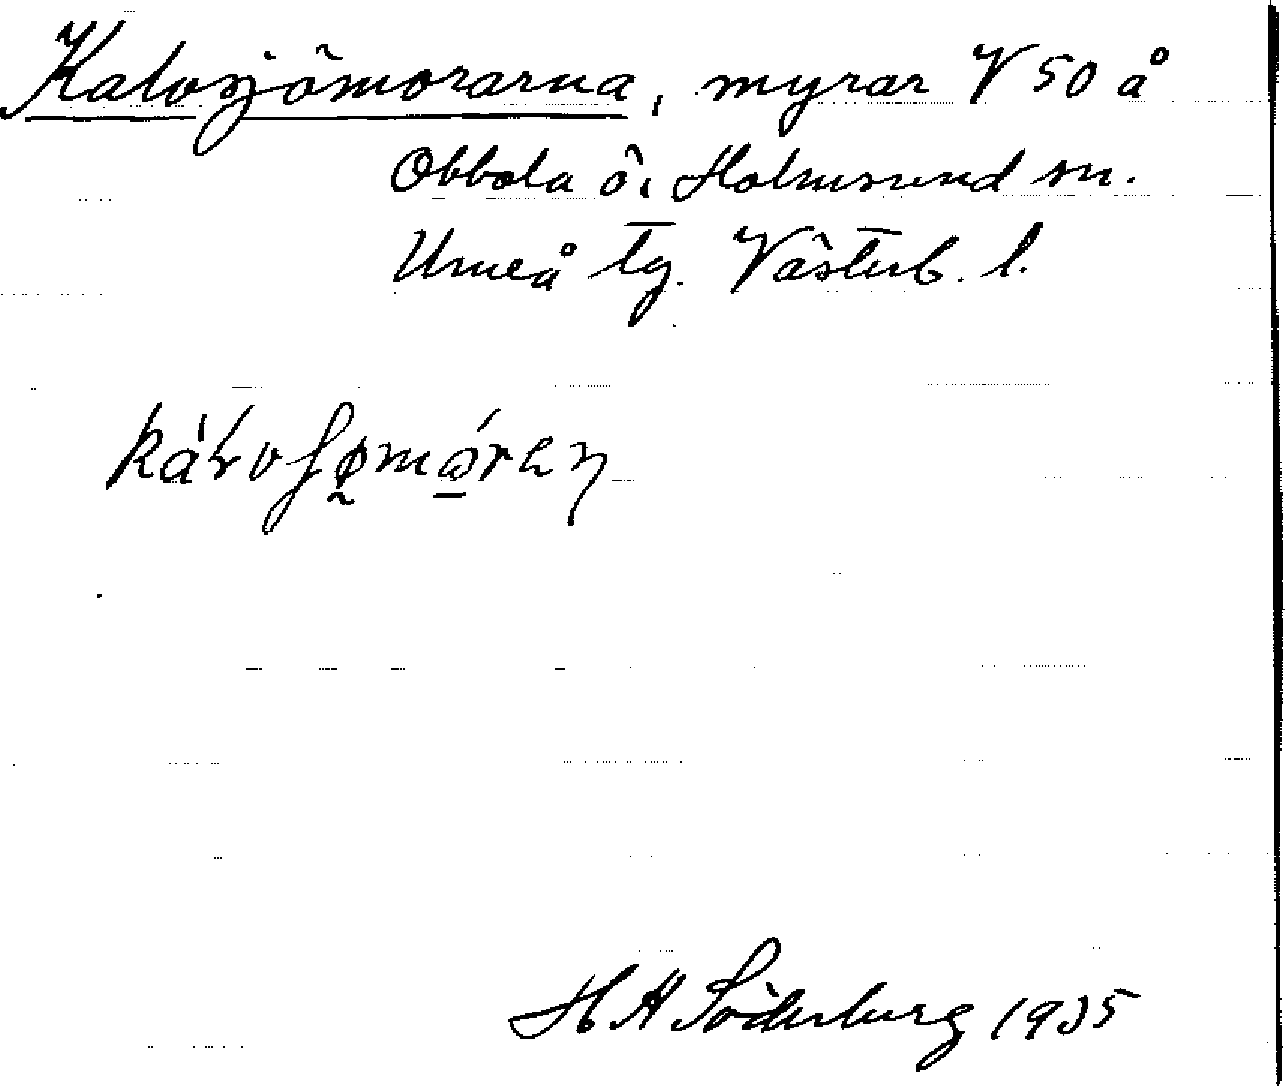 Kalvsjömorarna, myrar V 50 å
Obbola ö, Holmsund sn.
Umeå tg. Västerb. l.
H A Söderberg 1935